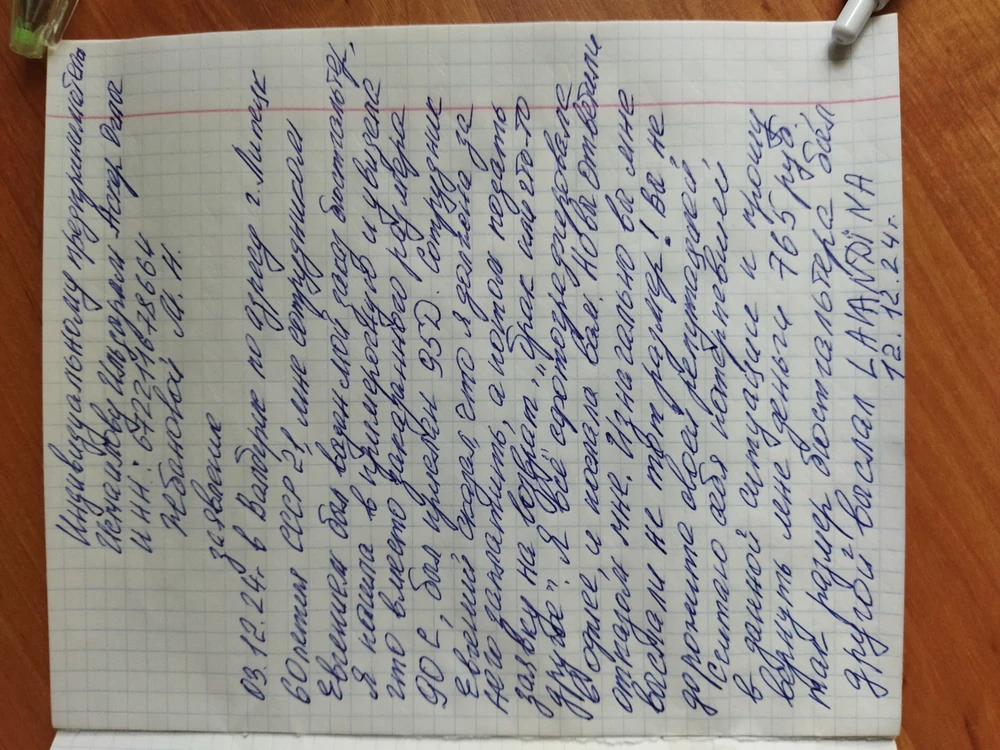 Индивидуальному предпринимателю
Исмаилову Ильгузули Аскер Оглы
ИНН: 672211678664
Жбановой М. Н.
заявление
03.12.24г. в Валдурис по адресу г. Липецк
60 летия СССР 21 мне сотрудником
Евгением был выдан мой заказ бюстгальтер,
Я пошла в примерочную и увидела
что вместо заказанного размера
90 E, был приклеен 95D. Сотрудник
Евгений сказал, что я должна за
него заплатить, а потом подать
заявку на возврат "брак или что-то
другое". Я всё сфотографировала
позже, и послала вам. Но вы ответили
отказом мне. Изначально вы мне
выслали не тот размер! Вы не
дорожите своей репутацией
Считаю себя потерпевшей
в данной ситуации и прошу
вернуть мне деньги 765 руб.
так размер бюстгальтера был
другой! выслал LAANTÏINA
12.12.24г.